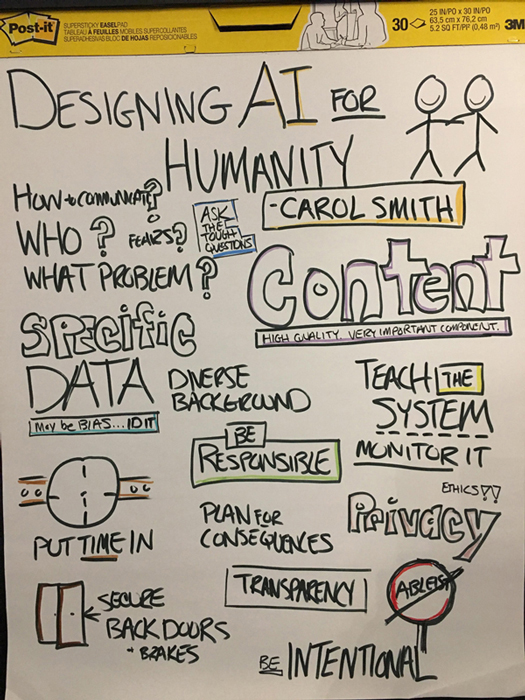 Post-it
SUPERSTICKY EASEL PAD
TABLEAU À FEUILLES MOBILES SUPERCOLLANTES
SUPERADHESIVAS BLOC DE HOJAS REPOSICIONABLES
30
25 IN/PO X 30 IN/PO
63,5 cm x 76,2 cm
5.2 SQ FT/PP (0,48 m²)
3M
DESIGNING AI FOR
HUMANITY
-CAROL SMITH
HOW to COMMUNICATE?
WHO? FEARS?
WHAT PROBLEM?
ASK
THE
TOUGH
QUESTIONS
Content
HIGH QUALITY... VERY IMPORTANT COMPONENT.
SPECIFIC
DATA
May be BIAS... ID IT
DIVERSE
BACKGROUND
TEACH THE
SYSTEM
MONITOR IT
BE
RESPONSIBLE
PUT TIME IN
PLAN FOR
CONSEQUENCES
ETHICS??
Privacy
TRANSPARENCY
ABLEIST
SECURE
BACK DOORS
+ BRAKES
BE INTENTIONAL